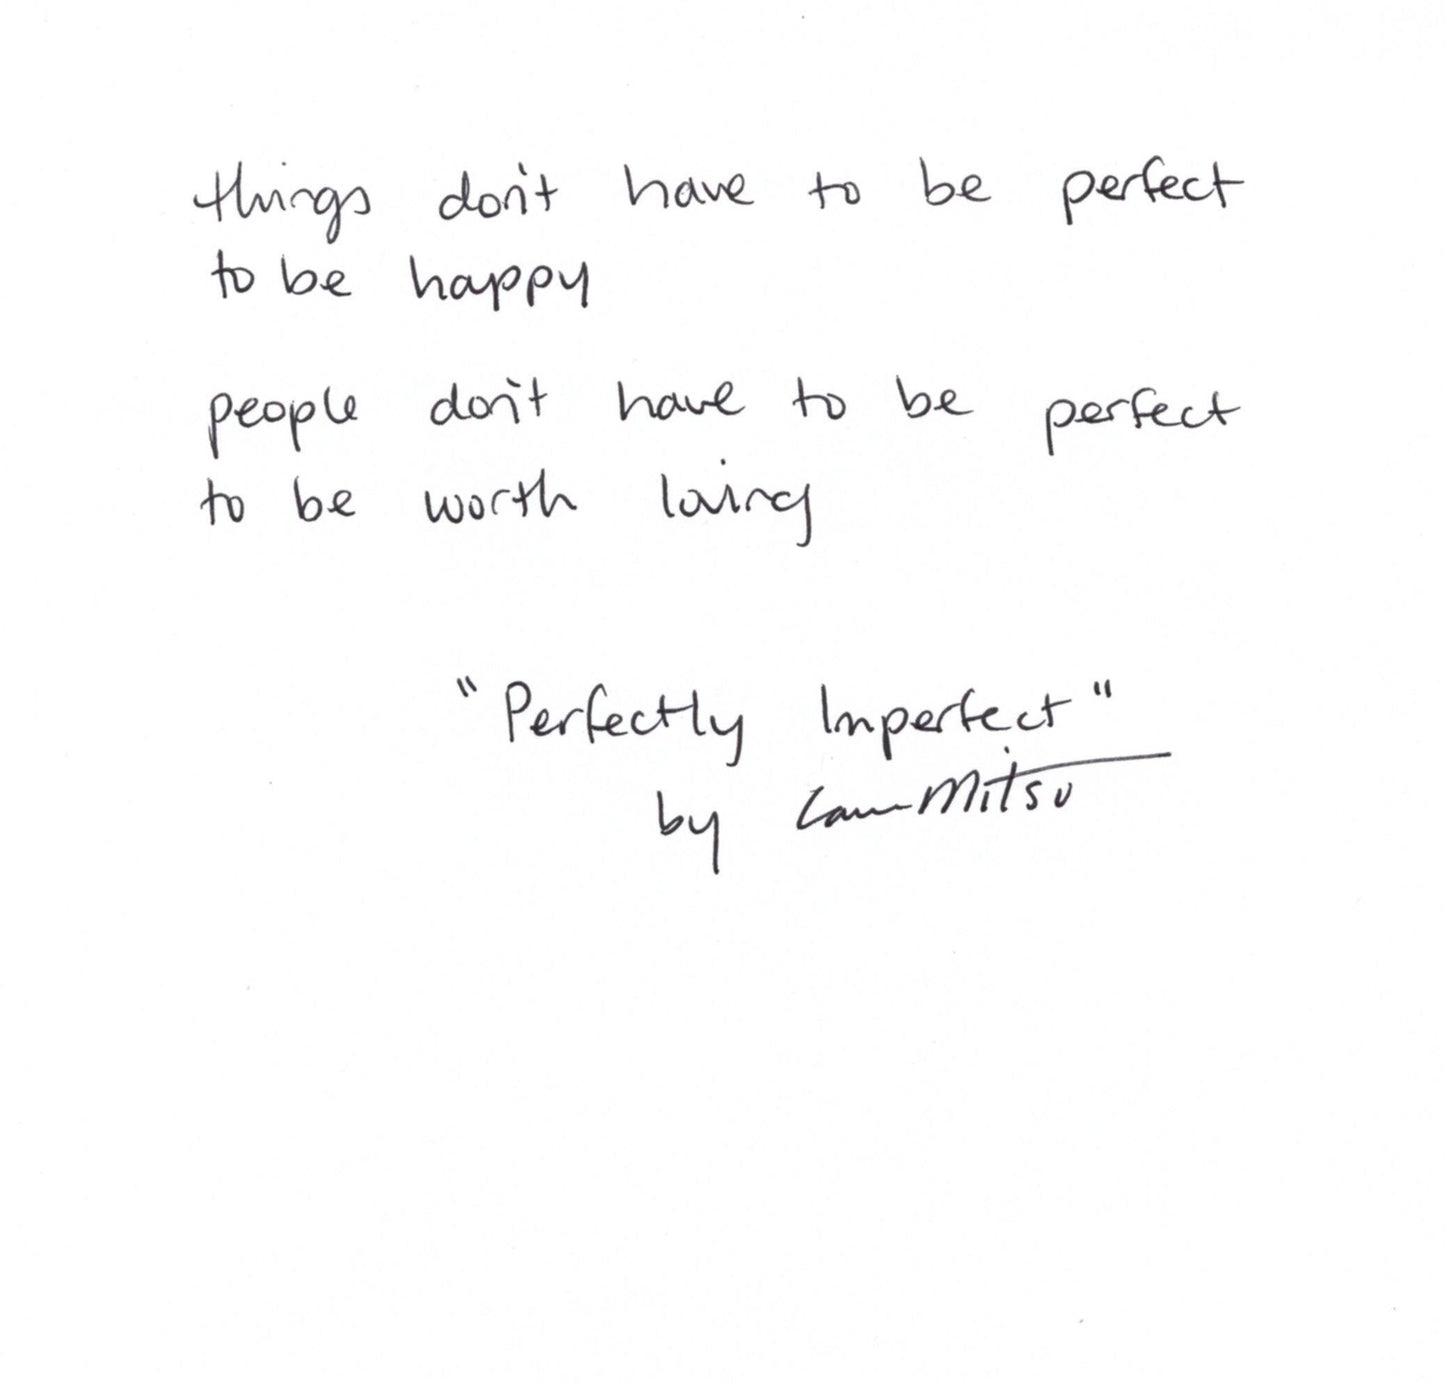 things don't have to be perfect
to be happy
people don't have to be perfect
to be worth loving
"Perfectly Imperfect"
by Mitsu